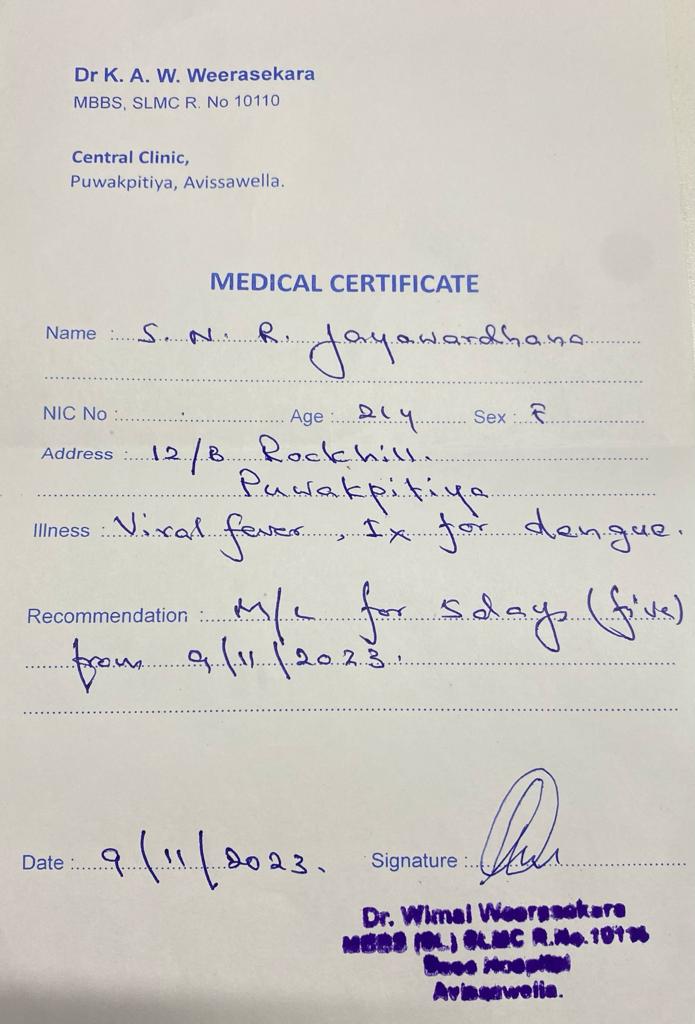 Dr K. A. W. Weerasekara
MBBS, SLMC R. No 10110
Central Clinic,
Puwakpitiya, Avissawella.
MEDICAL CERTIFICATE
Name : S. N. R. Jayawardhana
NIC No : Age : 21y Sex : F
Address : 12/B Rockhill.
Puwakpitiya
Illness : Viral fever, Ix for dengue.
Recommendation : M/L for 5 days (five)
from 9/11/2023.
Date : 9/11/2023. Signature :
Dr. Wimal Weerasekara
MBBS (SL) SLMC R.No.
Hospital
Avissawella.